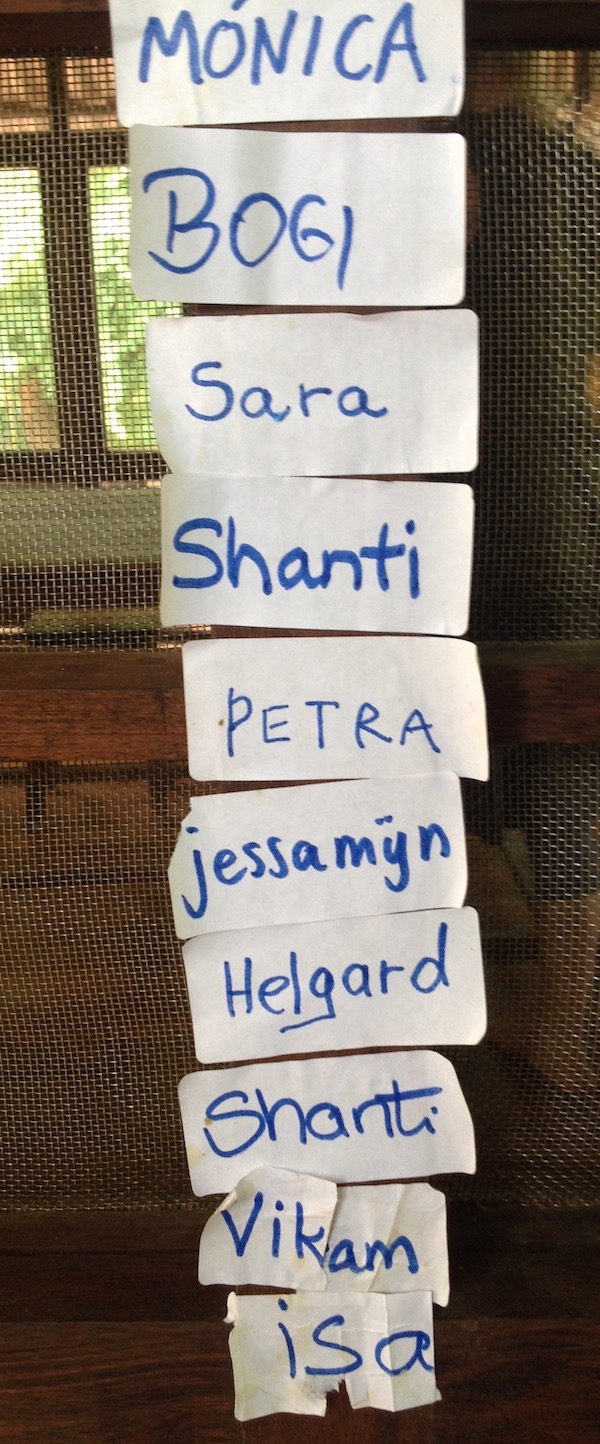 MÓNICA
BOGI
Sara
Shanti
PETRA
jessamÿn
Helgard
Shanti
Vikam
isa